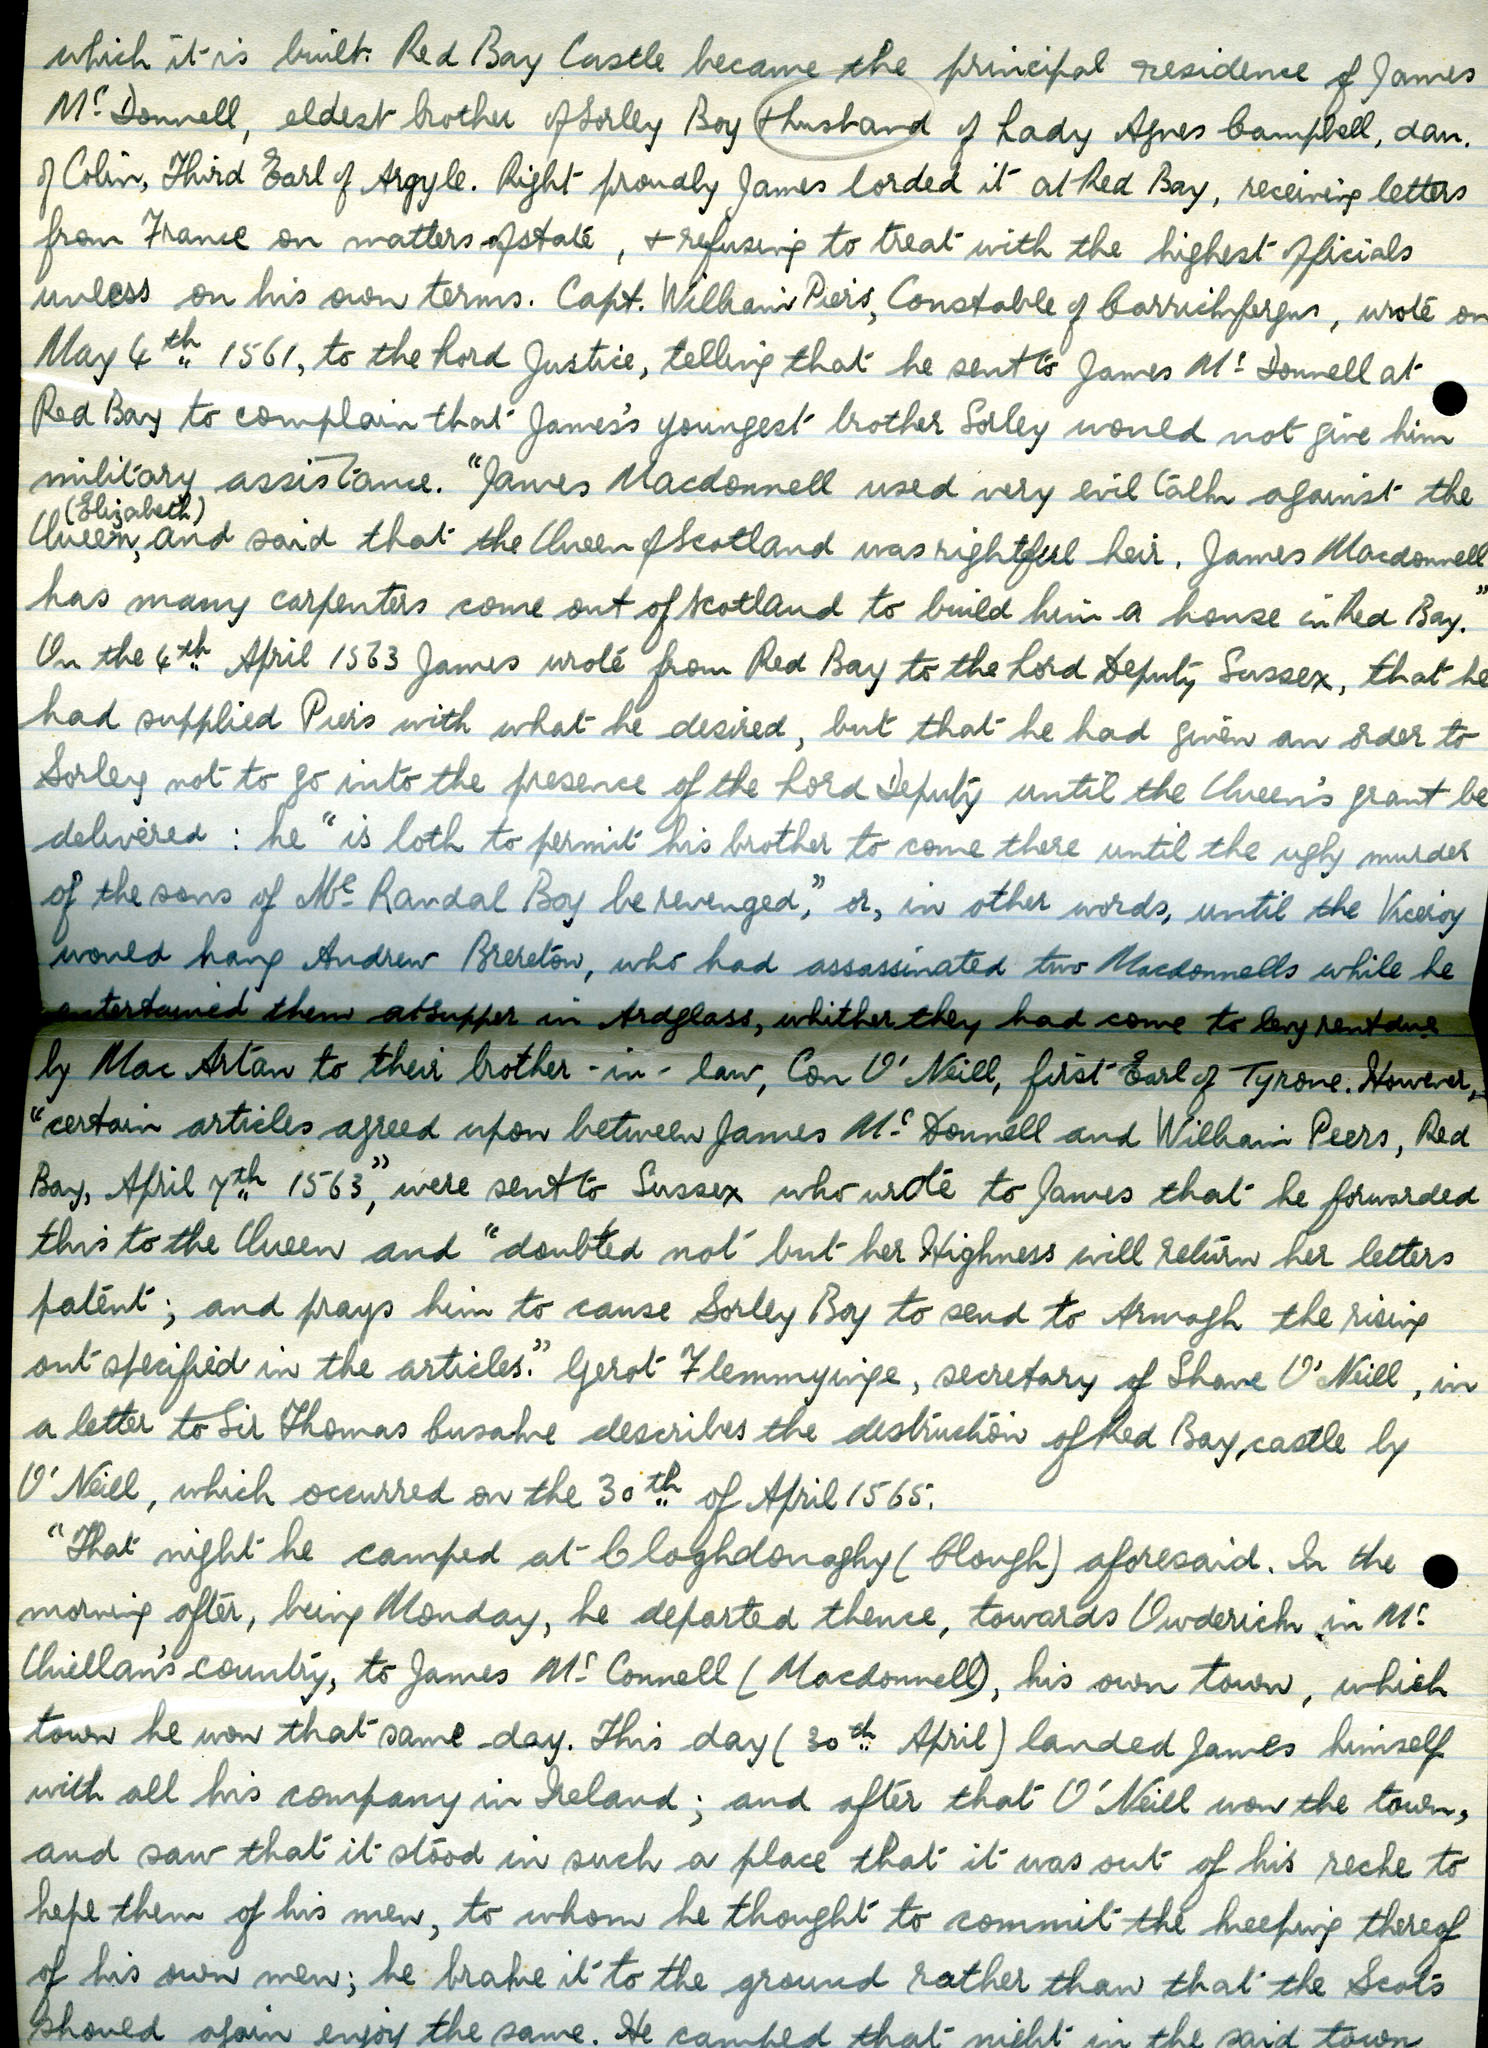 which it is built. Red Bay Castle became the principal residence of James
Mc Donnell, eldest brother of Sorley Boy & husband of Lady Agnes Campbell, dau.
of Colin, Third Earl of Argyle. Right proudly James lorded it at Red Bay, receiving letters
from France on matters of state, & refusing to treat with the highest officials
unless on his own terms. Capt. William Piers, Constable of Carrickfergus, wrote on
May 4th 1561, to the Lord Justice, telling that he sent to James Mc Donnell at
Red Bay to complain that James's youngest brother Sorley would not give him
military assistance. "James Macdonnell used very evil talk against the
(Elizabeth)
Queen, and said that the Queen of Scotland was rightful heir. James Macdonnell
has many carpenters come out of Scotland to build him a house in Red Bay."
On the 4th April 1563 James wrote from Red Bay to the Lord Deputy Sussex, that he
had supplied Piers with what he desired, but that he had given an order to
Sorley not to go into the presence of the Lord Deputy until the Queen's grant be
delivered : he "is loth to permit his brother to come there until the ugly murder
of the sons of Mc Randal Boy be revenged," or, in other words, until the Viceroy
would hang Andrew Brereton, who had assassinated two Macdonnells while he
entertained them at supper in Ardglass, whither they had come to levy rent due
by Mac Artan to their brother-in-law, Con O'Neill, first Earl of Tyrone. However,
"certain articles agreed upon between James Mc Donnell and William Peers, Red
Bay, April 7th 1563," were sent to Sussex who wrote to James that he forwarded
this to the Queen and "doubted not but her Highness will return her letters
patent; and prays him to cause Sorley Boy to send to Armagh the rising
out specified in the articles." Gerot Flemmynge, secretary of Shane O'Neill, in
a letter to Sir Thomas Cusake describes the destruction of Red Bay castle by
O'Neill, which occurred on the 30th of April 1565.
"That night he camped at Cloghdonaghy (Clough) aforesaid. In the
morning after, being Monday, he departed thence, towards Owderich in Mc
Quillan's country, to James Mc Connell (Macdonnell), his own town, which
town he won that same day. This day (30th April) landed James himself
with all his company in Ireland; and after that O'Neill won the town,
and saw that it stood in such a place that it was out of his reche to
hepe them of his men, to whom he thought to commit the keeping thereof
of his own men; he brake it to the ground rather than that the Scots
should again enjoy the same. He camped that night in the said town